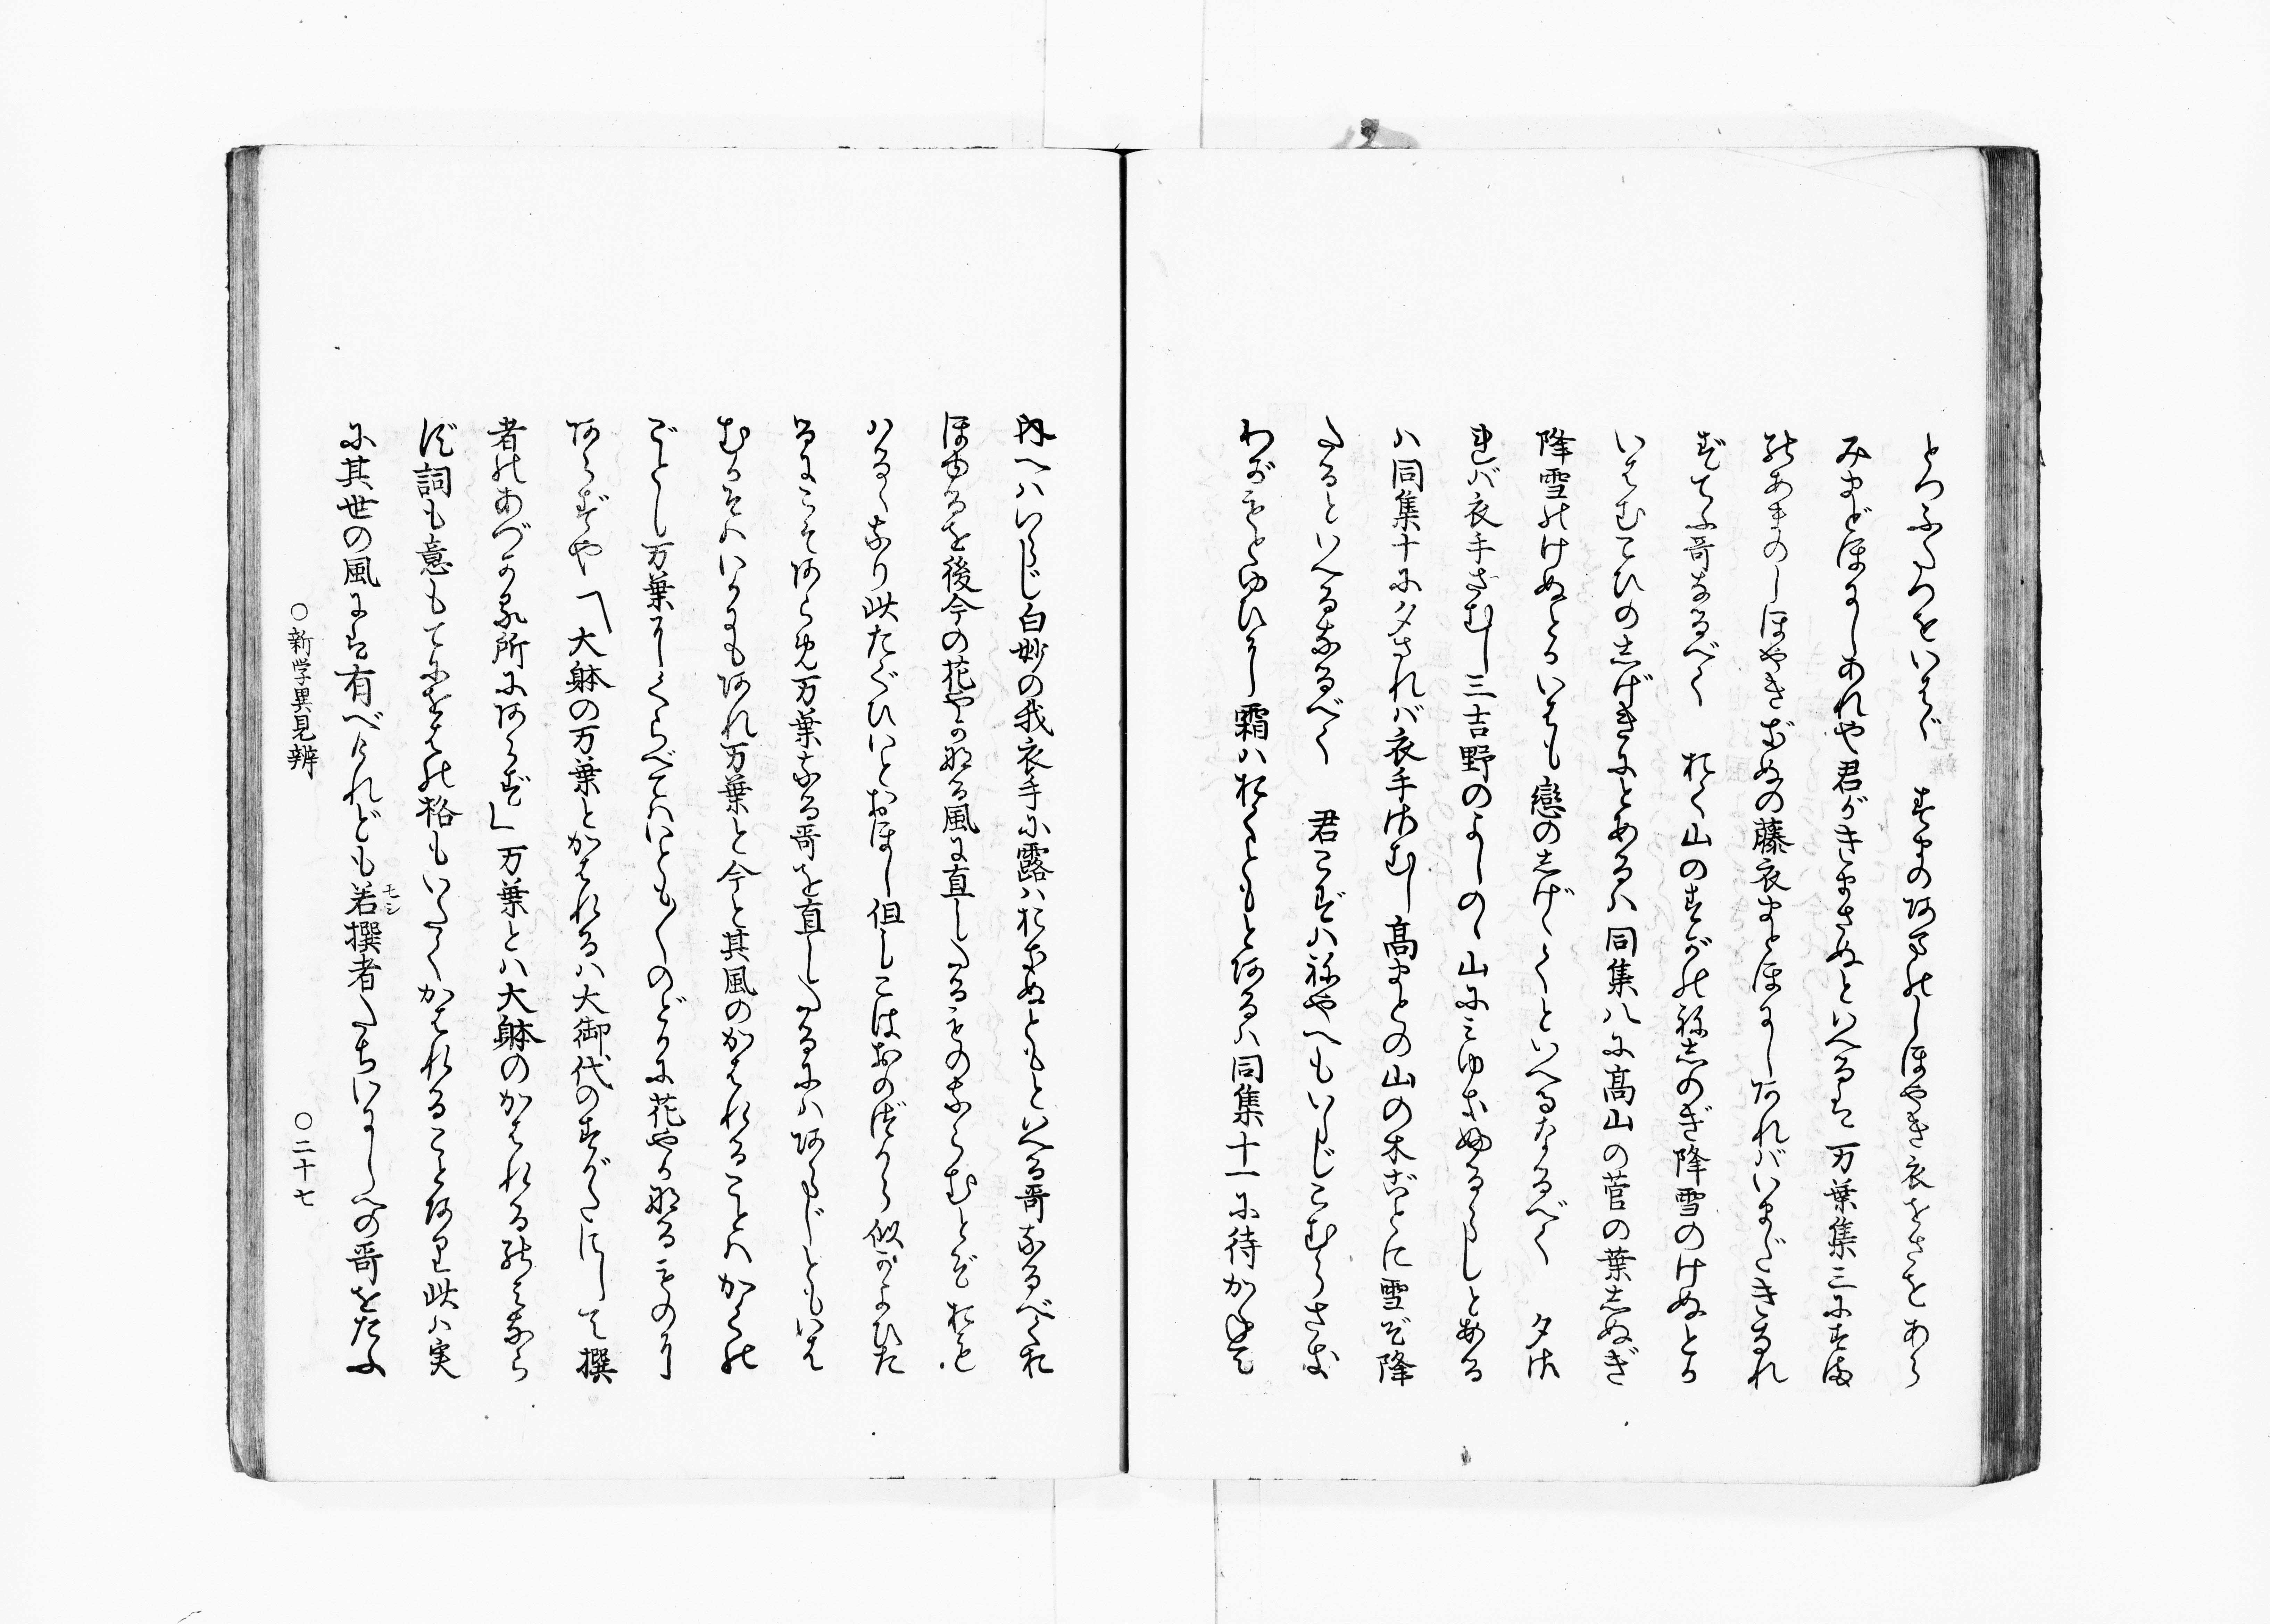 とつふたつをいはゞ　すまのあまのしほやき衣をさをあら
みまどほにしあれや君がきまさぬといへるは万葉集三にすま
のあまのしほやきぎぬの藤衣まとほにしあればいまだきなれ
ずてふ哥なるべく　おく山のすがのねしのぎ降雪のけぬとか
いはむこひのしげきにとあるは同集八に高山の菅の葉しぬぎ
降雪のけぬとかいはも戀のしげゝくといへるなるべく　夕さ
れば衣手さむしみ吉野のよしのゝ山にみゆきふるらしとある
ハ同集十に夕されば衣手さむし高まとの山の木ごとに雪ぞ降
たるといへるなるべく　君こずハねやへもいらじこむらさき
わがもとゆひにし霜ハおくともとあるハ同集十一に待かねて
内へハいらじ白妙の我衣手に露ハおきぬともといへる哥なるべくお
ほゆるを後今の花やかなる風に直したるものならむとぞおも
ハるゝなり此たぐひいとおほし但しこはおのづから似かよひた
るにこそあらめ万葉なる哥を直したるにハあらじともいは
むかそハいかにもあれ万葉と今と其風のかはれることハかくの
ごとし万葉にくらべてハいとも〳〵のどかに花やかなるものに
あらずや「大躰の万葉とかはれるハ大御代のすがたにして撰
者のあづかる所にあらず」万葉とハ大躰のかはれるのみなら
ず詞も意もてにをはの格もいたくかはれることあり此ハ実
に其世の風には有べけれども若撰者たちいにしへの哥をたふ
モシ
○新学異見辨
○二十七